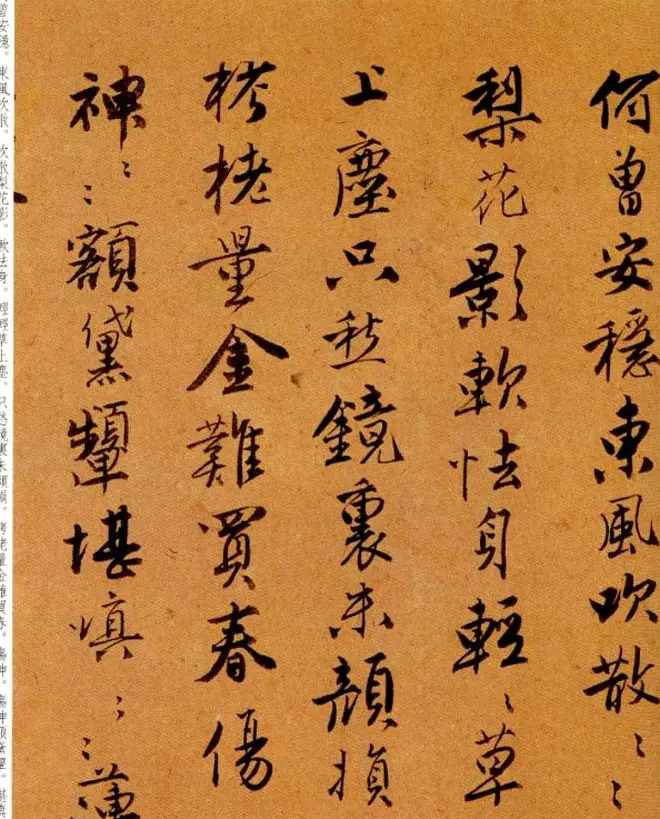 何曾安穩東風吹散〻〻
梨花影軟怯身輕〻草
上塵只愁鏡裏朱顏損
栲栳量金難買春傷
神〻〻額黛顰堪慎〻〻
曾安穩。東風吹散。吹散梨花影。軟怯身。輕輕草上塵。只愁鏡裏朱顏損。栲栳量金難買春。傷神。傷神額黛顰。堪